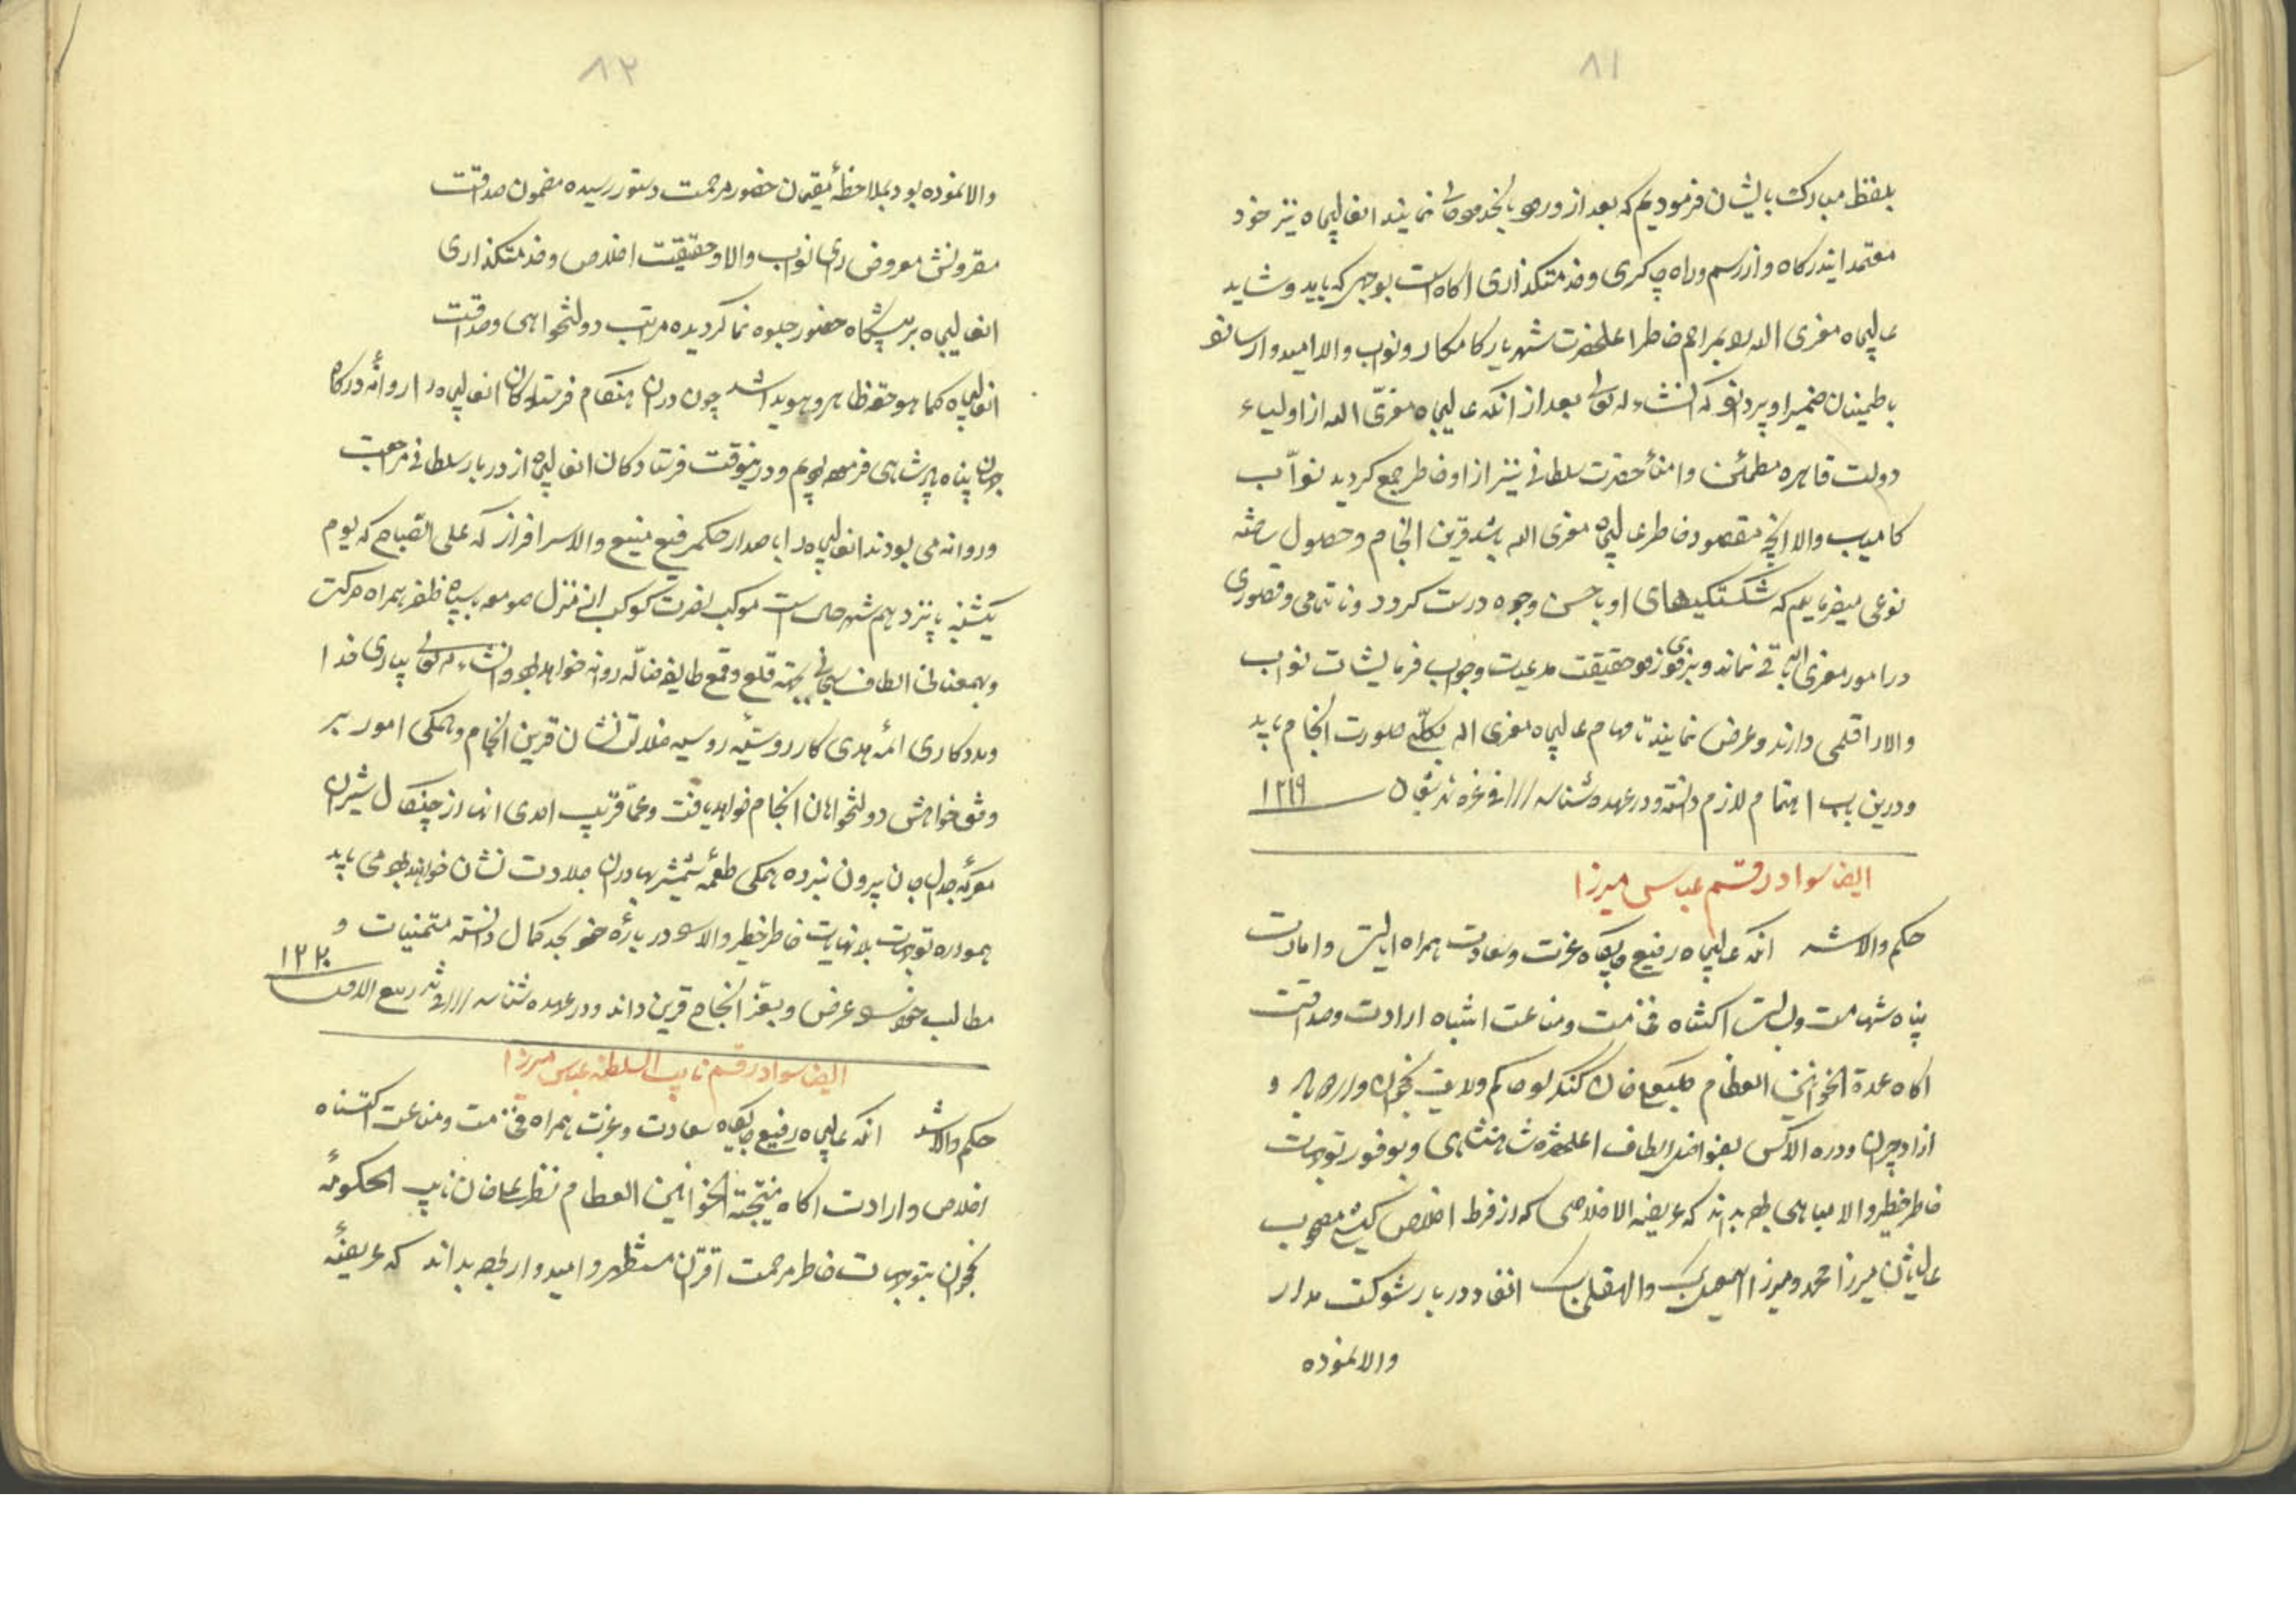 ٨١
بلفظ مبارک بایشان فرمودیم که بعد از ورود بانخدود نمایند انعالیجاه نیز خود
معتمد ایندرکاه و از رسم و راه چاکری و خدمتکذاری اکاه است بوجهی که باید و شاید
عالیجاه معزی الیه را بمراحم خاطر اعلحضرت شهریار کامکار و نواب والا امیدوار ساخته
باطمینان ضمیر او پردازد که انشاءالله تعالی بعد از انکه عالیجاه معزی الیه از اولیاء
دولت قاهره مطمئن و امناء حضرت سلطانی نیز از او خاطر جمع کردید نواب
کامیاب والا انچه مقصود خاطر عالیجاه معزی الیه باشد قرین انجام و حصول ساخته
نوعی میفرمایم که شکستکیهای او باحسن وجوه درست کردد و ناتمامی و قصوری
در امور معزی الیه باقی نماند و بزودی حقیقت مدعیات و جواب فرمایشات نواب
والا را قلمی دارند و عرض نمایند تا مهام عالیجاه معزی الیه بکلی صورت انجام یابد
و درین باب اهتمام لازم دانسته و در عهده شناسند فی غره شهر شعبان ١٢١٩
ایضا سواد رقم عباس میرزا
حکم والا شد انکه عالیجاه رفیع جایکاه عزت و سعادت همراه ایالت و امارت
پناه شهامت و بسالت اکتناه فخامت و مناعت انتباه ارادت و صداقت
اکاه عمدة الخوانین العظام خان کنکرلو حاکم ولایت نخجوان و اردوباد و
ازادجیران و دره الاکس بفواضل الطاف اعلحضرت شاهنشاهی و بوفور توجهات
خاطر خطیر والا مباهی بوده بداند که عریضه الاخلاصی که از فرط اخلاص کیشی مصحوب
عالیشان میرزا محمد و میرزا و انفاد دربار شوکت مدار
والا نموده
٨٢
والا نموده بود بملاحظهٔ مقیمان حضور مرحمت دستور رسیده مضمون صداقت
مقرونش معروض رای نواب والا و حقیقت اخلاص و خدمتکذاری
انعالیجاه بر پیشکاه حضور جلوه نما کردیده مراتب دولتخواهی و صداقت
انعالیجاه کما هو حقه ظاهر و هویدا شد چون دران هنکام فرستادکان انعالیجاه را روانهٔ درکاه
جهان پناه شاهی فرموده بودیم و در اینوقت فرستادکان انعالیجاه از دربار سلطانی مراجعت
و روانه می بودند انعالیجاه را باصدار حکم رفیع منیع والا سرافراز که علی الصباح که یوم
یکشنبه پانزدهم شهر حال است موکب نصرت کوکب از منزل صومعه با سپاه ظفر همراه حرکت
و بهمعنانی الطاف سبحانی بجهته قلع و قمع طایفه ضاله روانه خواهد بود و انشاءالله تعالی بیاری خدا
و مددکاری ائمه هدی کار روسیه ضلالت نشان قرین انجام و همکی امور بر
وفق خواهش دولتخواهان انجام خواهد یافت و عما قریب احدی انها از چنکال شیران
معرکه جدال جان بیرون نبرده همکی طعمهٔ شمشیر بهادران جلادت نشان خواهند بود می باید
همواره توجهات بلانهایت خاطر خطیر والا را در بارهٔ خود بحد کمال دانسته متمنیات و
مطالب خود را عرض و بعز انجام قرین داند و در عهده شناسد فی شهر ربیع الاول ١٢٢٠
ایضا سواد رقم نایب السلطنه عباس میرزا
حکم والا شد انکه عالیجاه رفیع جایکاه سعادت و عزت همراه فخامت و مناعت اکتناه
اخلاص و ارادت اکاه نتیجة الخوانین العظام نظر علیخان نایب الحکومهٔ
نخجوان بتوجهات خاطر مرحمت اقتران مستظهر و امیدوار بوده بداند که عریضهٔ